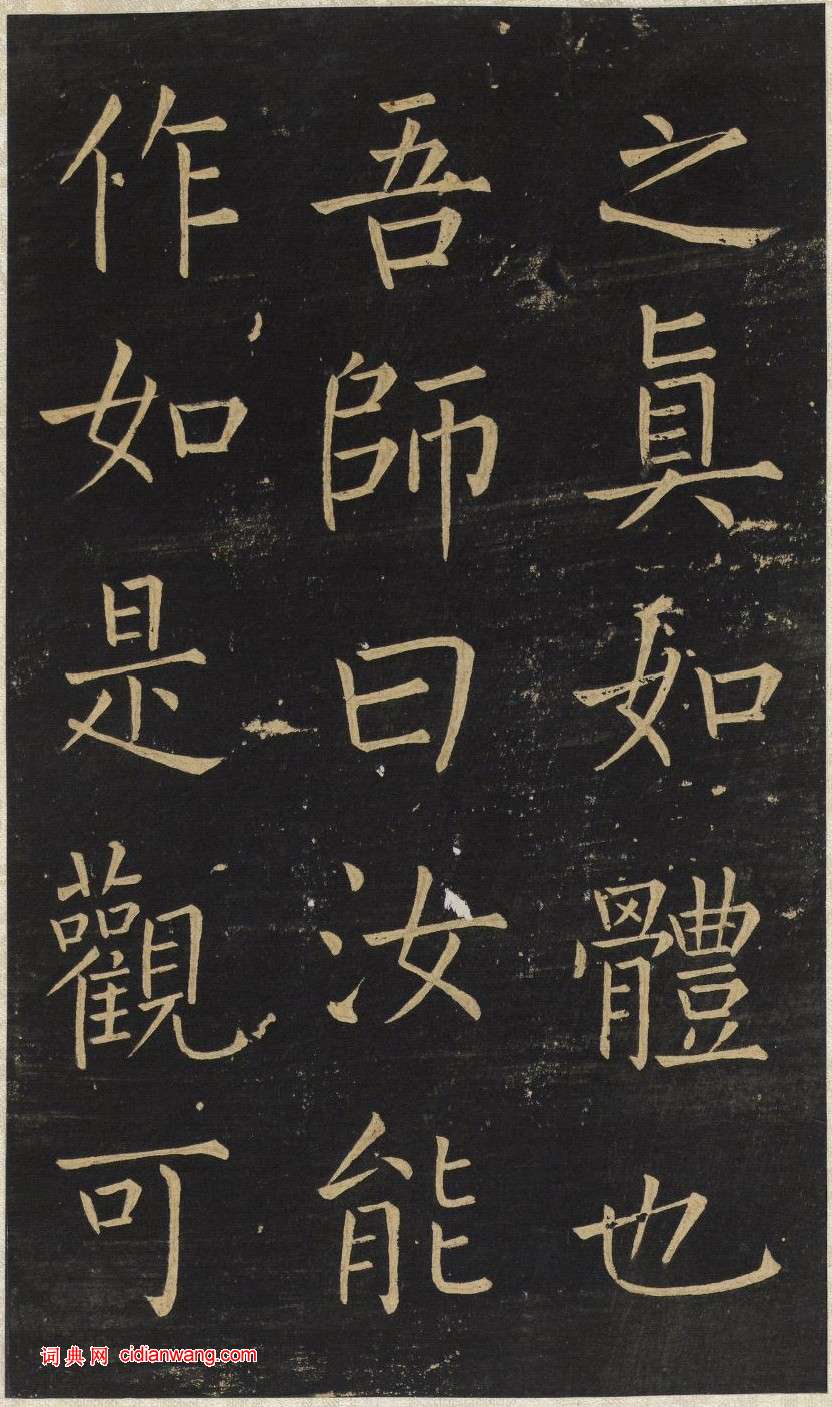 之真如體也
吾師曰汝能
作如是觀可
词典网 cidianwang.com